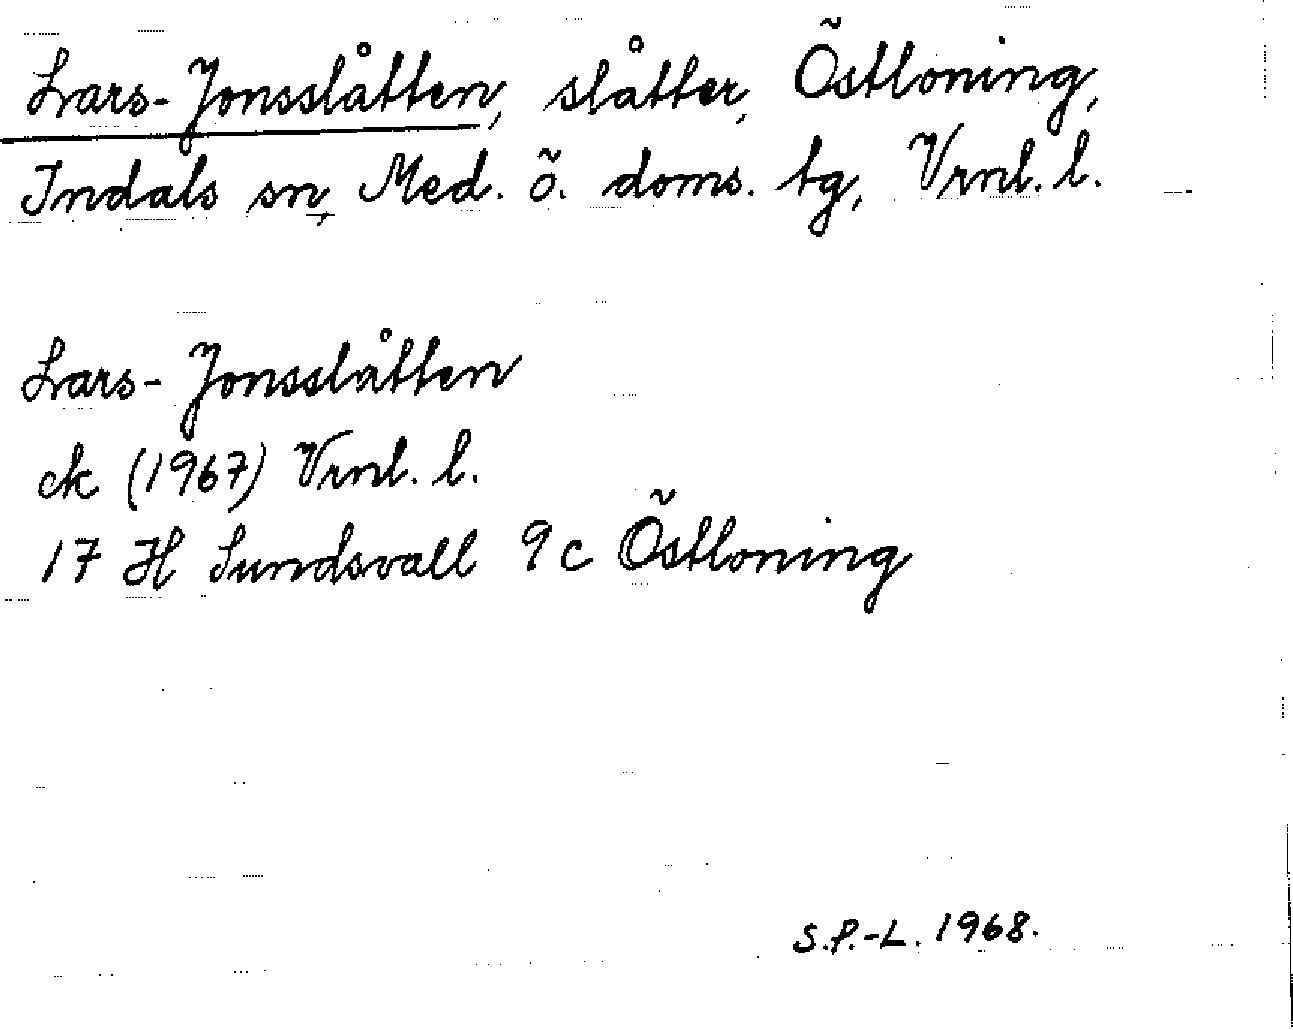 Lars-Jonsslåtten, slåtter, Östloning,
Indals sn, Med. ö. doms. tg, Vrnl. l.
Lars-Jonsslåtten
ek (1967) Vrnl. l.
17 H Sundsvall 9c Östloning
S.P.-L. 1968.